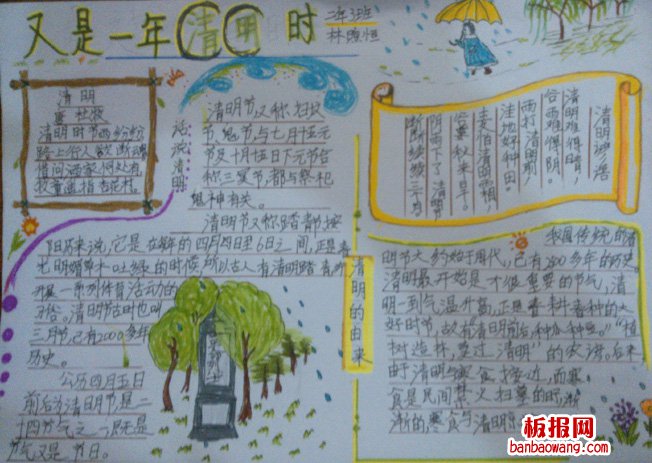 又是一年清明时
二年3班
清明
唐 杜牧
清明时节雨纷纷
路上行人欲断魂
借问酒家何处有
牧童遥指杏花村
清明
清明节又称扫坟
节、鬼节与七月十五元
节及十月十五日下元节合
称三冥节,都与祭祀
鬼神有关。
清明节又称踏青节,按
阳历来说,它是在每年的四月四日至6日之间,正是春
光明媚草木吐绿的时候,所以古人有清明踏青,并
开展一系列体育活动的
习俗。清明节古时也叫
三月节,已有2000多年
历史。
公历四月五日
前后为清明节是二
十四节气之一,既是
节气又是节日。
清明谚语
清明难得晴,
谷雨难得阴。
雨打清明前,
洼地好种田。
麦怕清明霜,
谷要秋来旱。
阴雨下了清明节
断断续续三个月
清明的由来
我国传统的清
明节大约始于周代,已有2500多年的历史。
清明最开始是一个很重要的节气,清
明一到气温升高,正是春耕春种的大
好时节,故有“清明前后,种瓜种豆。”“植
树造林,莫过清明”的农谚。后来
由于清明与寒食接近,而寒
食是民间禁火扫墓的日渐
渐的寒食与清明
板报网
banbaowang.com